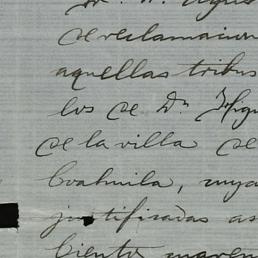 de reclamacion
aquellas tribus
los de Dn
de la villa de
Coahuila, cuya
justificadas as
ciento noven